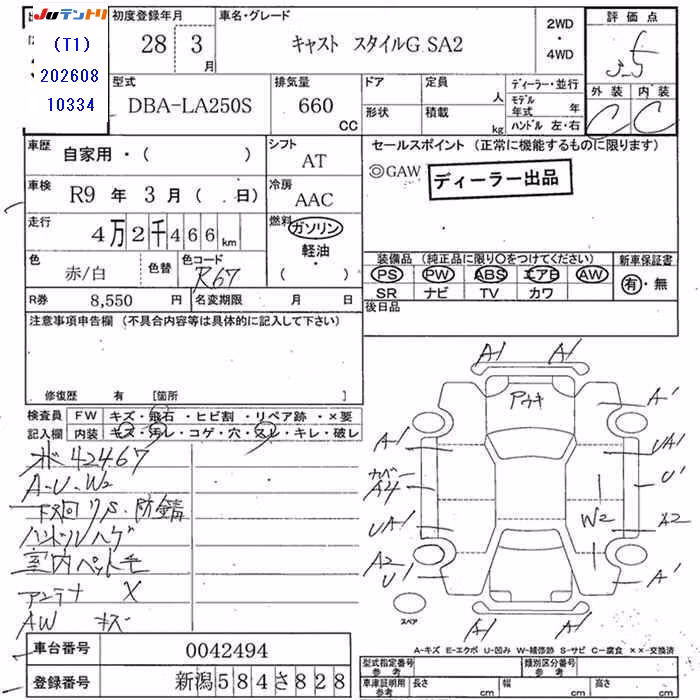 JUテントリ
(T1)
202608
10334
初度登録年月
28 3
月
車名・グレード
キャスト スタイルG SA2
2WD
・
4WD
評価点
3.5
外装 内装
C C
型式
DBA-LA250S
排気量
660
CC
ドア
形状
定員
人
積載
kg
ディーラー・並行
モデル
年式 年
ハンドル 左・右
車歴
自家用・( )
シフト
AT
車検
R9 年 3 月 ( 日)
冷房
AAC
走行
4万2千466km
燃料
ガソリン
軽油
・
( )
色
赤/白
色替
色コード
R67
R券 8,550 円
名変期限 月 日
セールスポイント (正常に機能するものに限ります)
◎GAW
ディーラー出品
装備品 (純正品に限り○をつけてください)
PS PW ABS エアB AW
SR ナビ TV カワ
新車保証書
有・無
後日品
注意事項申告欄 (不具合内容等は具体的に記入して下さい)
修復歴 有 [箇所 ]
検査員 FW キズ・飛石・ヒビ割・リペア跡・×要
記入欄 内装 キズ・汚レ・コゲ・穴・スレ・キレ・破レ
42467
A-U-W2
下回りS・防錆
ハンドルハゲ
室内ペットモ
アンテナ X
AW キズ
A1 A1
A'
A1 UA1
カバー
A4 U'
UA1 W2 A2
A2
U1 A'
A1 A1
スペア
A-キズ E-エクボ U-凹み W-補修跡 S-サビ C-腐食 ××-交換済
車台番号 0042494
登録番号 新潟584さ828
型式指定番号
参考
類別区分番号
参考
車庫証明用
参考
長さ cm
幅 cm
高さ cm